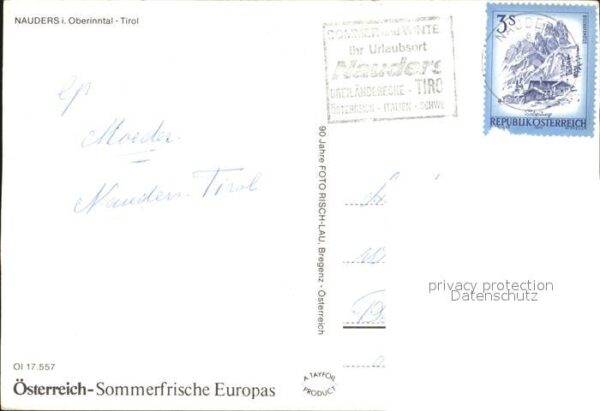 NAUDERS i. Oberinntal - Tirol
SOMMER und WINTE
Ihr Urlaubsort
Nauders
DREILÄNDERECKE - TIRO
ÖSTERREICH - ITALIEN - SCHWE
NAUDER
3 S
REPUBLIK ÖSTERREICH
Nauders - Tirol
90 Jahre FOTO RISCH-LAU, Bregenz - Österreich
privacy protection
Datenschutz
OI 17.557
Österreich-Sommerfrische Europas
A TAYFOIL
PRODUCT